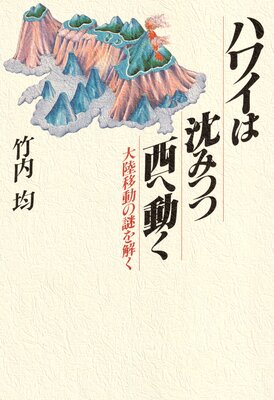 ハワイは
沈みつつ
西へ動く
大陸移動の謎を解く
竹内 均